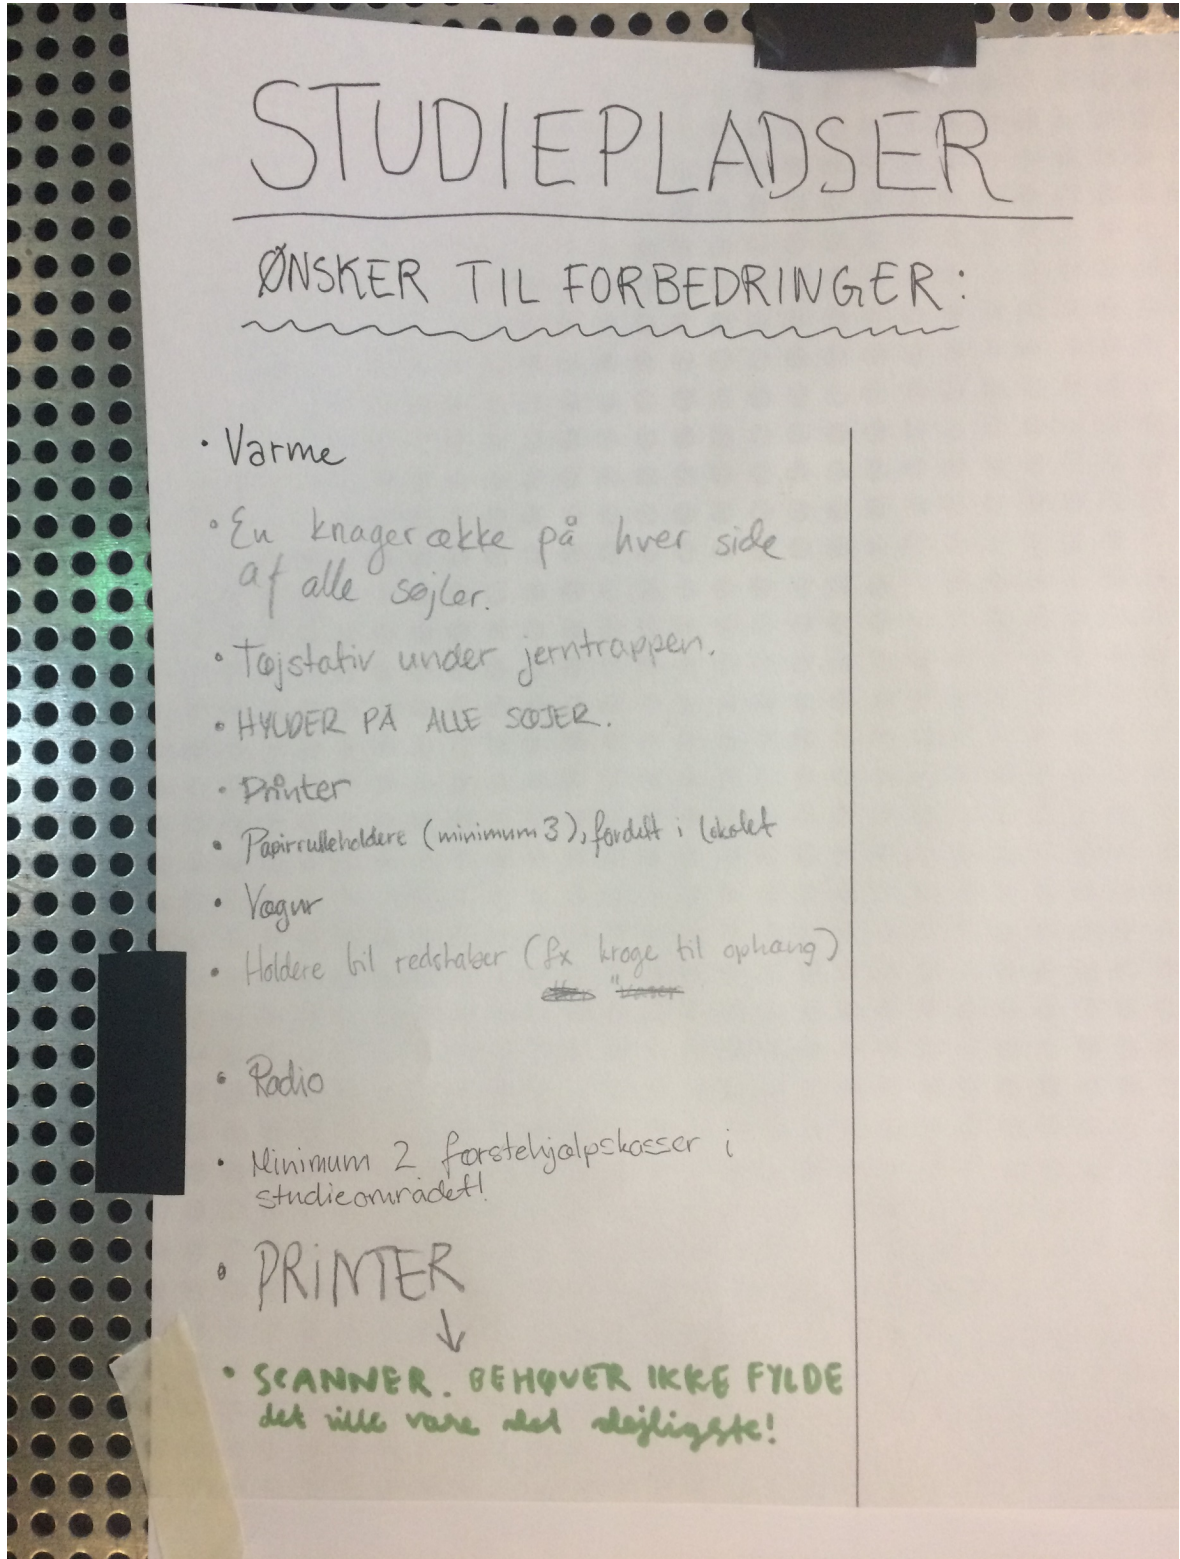 STUDIEPLADSER
ØNSKER TIL FORBEDRINGER:
• Varme
• En knagerække på hver side
af alle søjler.
• Tøjstativ under jerntrappen.
• HYLDER PÅ ALLE SØJER.
• Printer
• Papirrulleholdere (minimum 3), fordelt i lokalet
• Vægur
• Holdere til redskaber (fx kroge til ophæng)
• Radio
• Minimum 2 førstehjælpskasser i
studieområdet!
• PRINTER
• SCANNER. BEHØVER IKKE FYLDE
det ville være det dejligste!